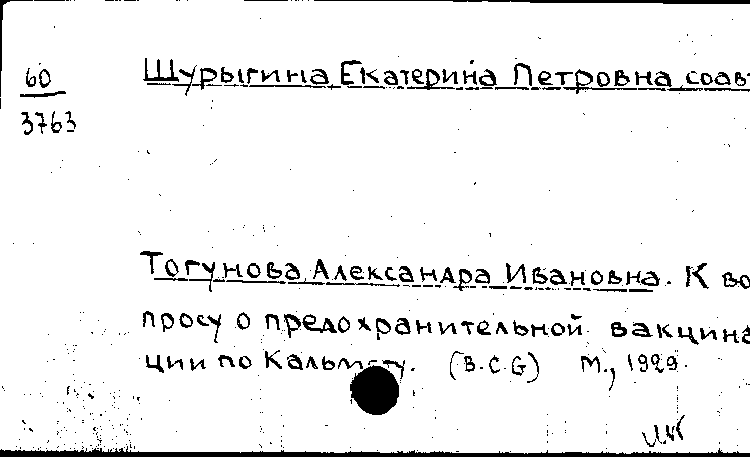 60
3763
Шурыгина Екатерина Петровна соав
Тогунова Александра Ивановна. К во
просу о предохранительной вакцина
ции по Кальмету. (B.C.G) М., 1929.